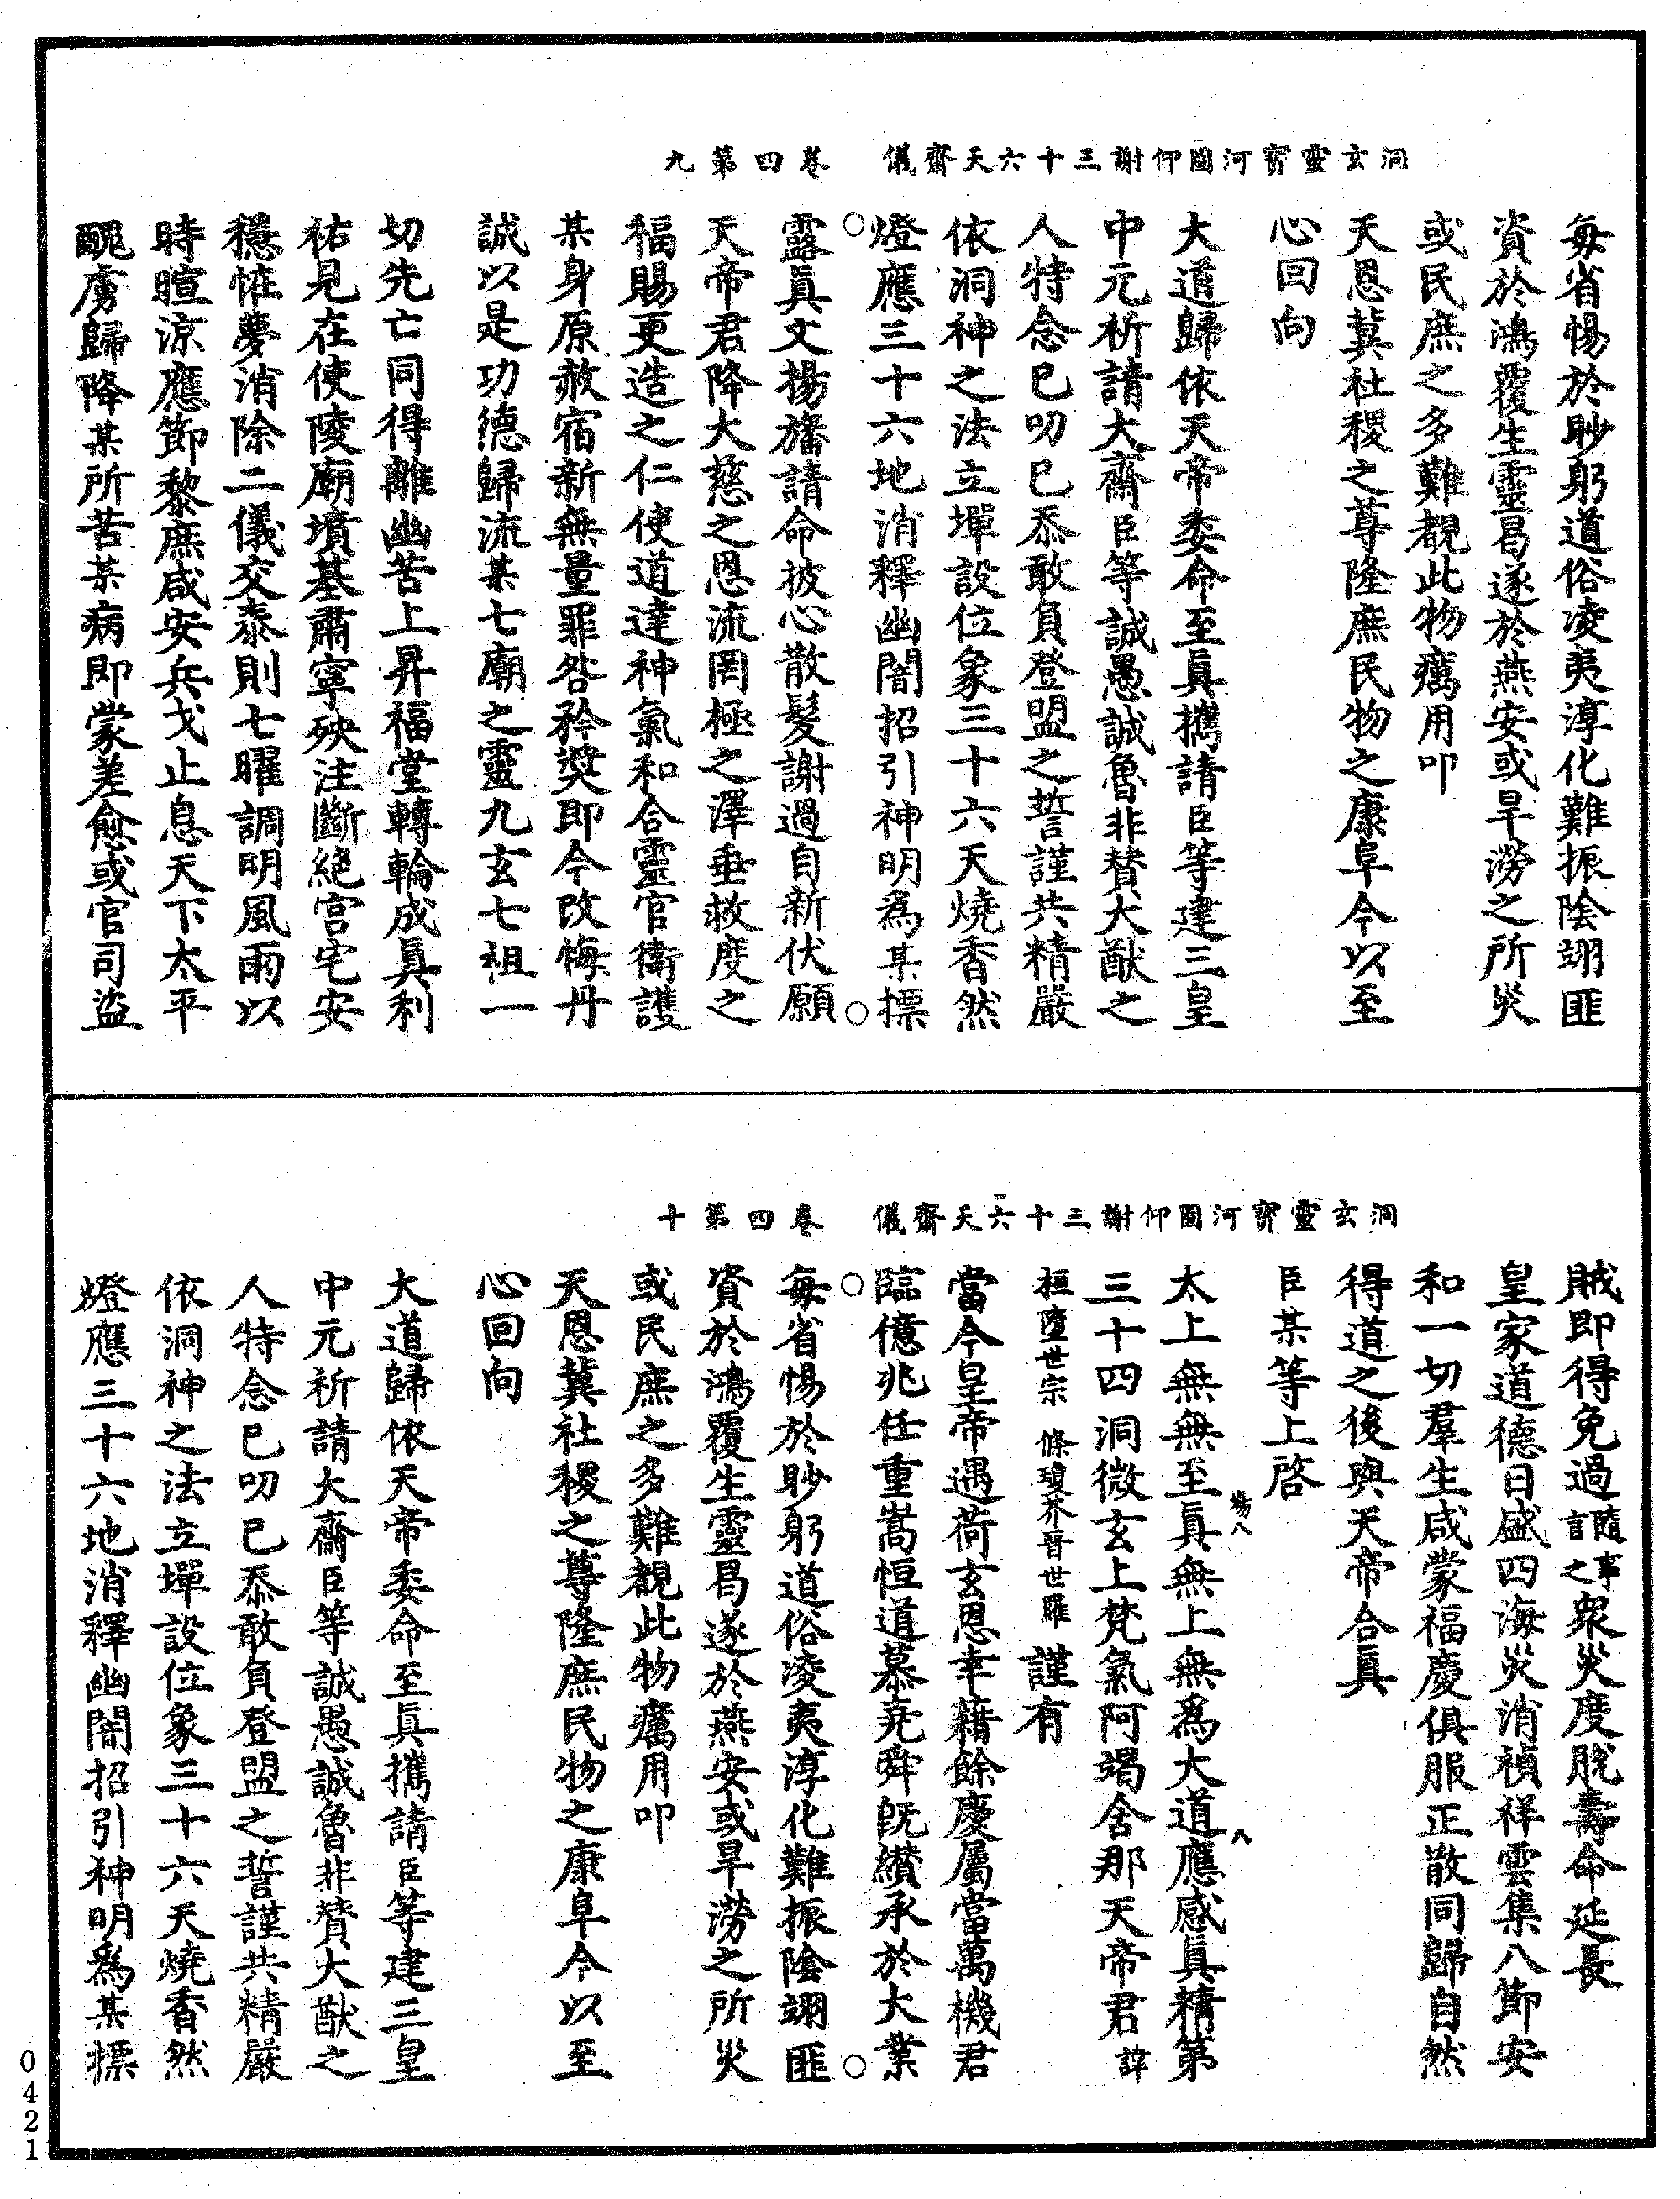 洞玄靈寶河圖仰謝三十六天齋儀　卷四第九
每省惕於眇躬道俗凌夷淳化難振陰翊匪
資於鴻覆生靈曷遂於燕安或旱澇之所災
或民庶之多難覩此物癘用叩
天恩冀社稷之尊隆庶民物之康阜今以至
心回向
大道歸依天帝委命至真攜請臣等建三皇
中元祈請大齋臣等誠愚誠魯非贊大猷之
人特念已叨已忝敢負登盟之誓謹共精嚴
依洞神之法立墠設位象三十六天燒香然
燈應三十六地消釋幽闇招引神明為某摽
露真文揚旛請命披心散髮謝過自新伏願
天帝君降大慈之恩流罔極之澤垂救度之
福賜更造之仁使道達神氣和合靈官衛護
某身原赦宿新無量罪咎矜獎即今改悔丹
誠以是功德歸流某七廟之靈九玄七祖一
切先亡同得離幽苦上昇福堂轉輪成真利
祐見在使陵廟墳基肅寧殃注斷絕宮宅安
穩怪夢消除二儀交泰則七曜調明風雨以
時暄涼應節黎庶咸安兵戈止息天下太平
醜虜歸降某所苦某病即蒙差愈或官司盜
洞玄靈寶河圖仰謝三十六天齋儀　卷四第十
賊即得免過隨事言之眾災度脫壽命延長
皇家道德日盛四海災消禎祥雲集八節安
和一切羣生咸蒙福慶俱服正散同歸自然
得道之後與天帝合真
臣某等上啓
太上無無至真無上無為大道應感真精第
三十四洞微玄上梵氣阿竭含那天帝君諱
桓墮世宗　條瓊芥晉世羅　謹有
當今皇帝遇荷玄恩幸藉餘慶屬當萬機君
臨億兆任重嵩恒道慕堯舜既纘承於大業
每省惕於眇躬道俗凌夷淳化難振陰翊匪
資於鴻覆生靈曷遂於燕安或旱澇之所災
或民庶之多難覩此物癘用叩
天恩冀社稷之尊隆庶民物之康阜今以至
心回向
大道歸依天帝委命至真攜請臣等建三皇
中元祈請大齋臣等誠愚誠魯非贊大猷之
人特念已叨已忝敢負登盟之誓謹共精嚴
依洞神之法立墠設位象三十六天燒香然
燈應三十六地消釋幽闇招引神明為某摽
0421